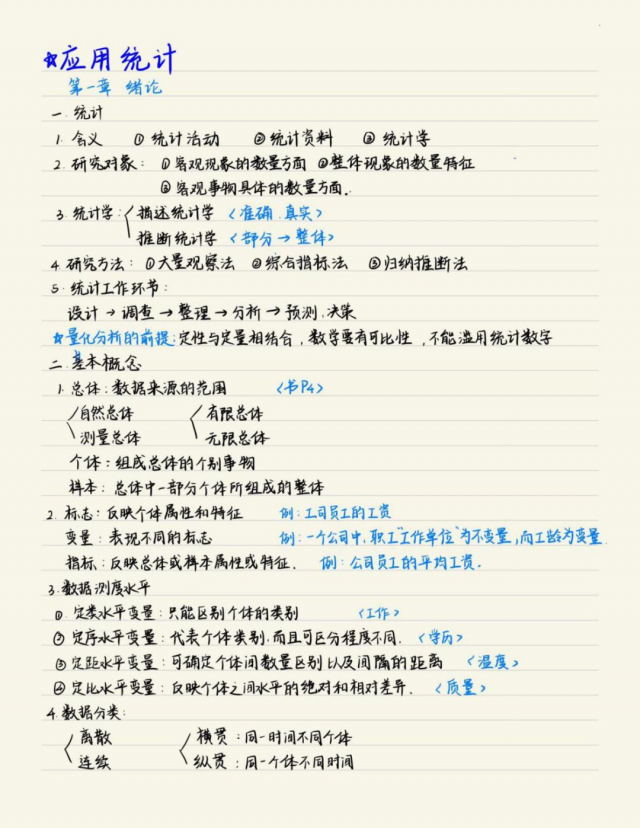 ☆应用统计
第一章 绪论
一. 统计
1. 含义 ① 统计活动 ②统计资料 ③ 统计学
2. 研究对象: ①客观现象的数量方面 ②整体现象的数量特征
③客观事物具体的数量方面.
3. 统计学: 描述统计学 <准确.真实>
推断统计学 <部分→整体>
4. 研究方法: ①大量观察法 ②综合指标法 ③归纳推断法
5. 统计工作环节:
设计 → 调查 → 整理 → 分析 → 预测.决策
☆量化分析的前提:定性与定量相结合,数学要有可比性,不能滥用统计数字
二. 基本概念
1. 总体:数据来源的范围 <书P4>
自然总体 有限总体
测量总体 无限总体
个体:组成总体的个别事物
样本:总体中一部分个体所组成的整体
2. 标志:反映个体属性和特征 例:公司员工的工资
变量:表现不同的标志 例:一个公司中,职工"工作单位"为不变量,而工龄为变量.
指标:反映总体或样本属性或特征. 例:公司员工的平均工资.
3.数据测度水平
① 定类水平变量:只能区别个体的类别 <工作>
② 定序水平变量:代表个体类别.而且可区分程度不同. <学历>
③ 定距水平变量:可确定个体间数量区别以及间隔的距离 <温度>
④ 定比水平变量:反映个体之间水平的绝对和相对差异. <质量>
4.数据分类:
离散 横贯:同一时间不同个体
连续 纵贯:同一个体不同时间